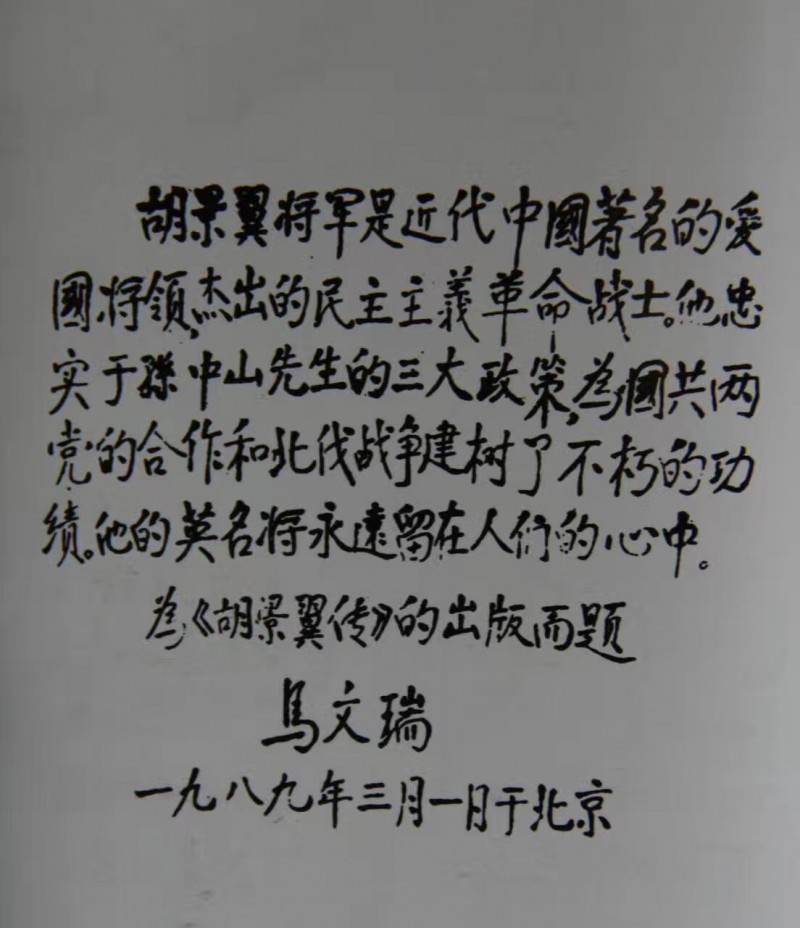 胡景翼将军是近代中國著名的愛
國将领,杰出的民主主義革命战士。他忠
实于孫中山先生的三大政策,為國共两
党的合作和北伐战争建树了不朽的功
绩。他的英名将永遠留在人们的心中。
為《胡景翼传》的出版而题
馬文瑞
一九八九年三月一日于北京